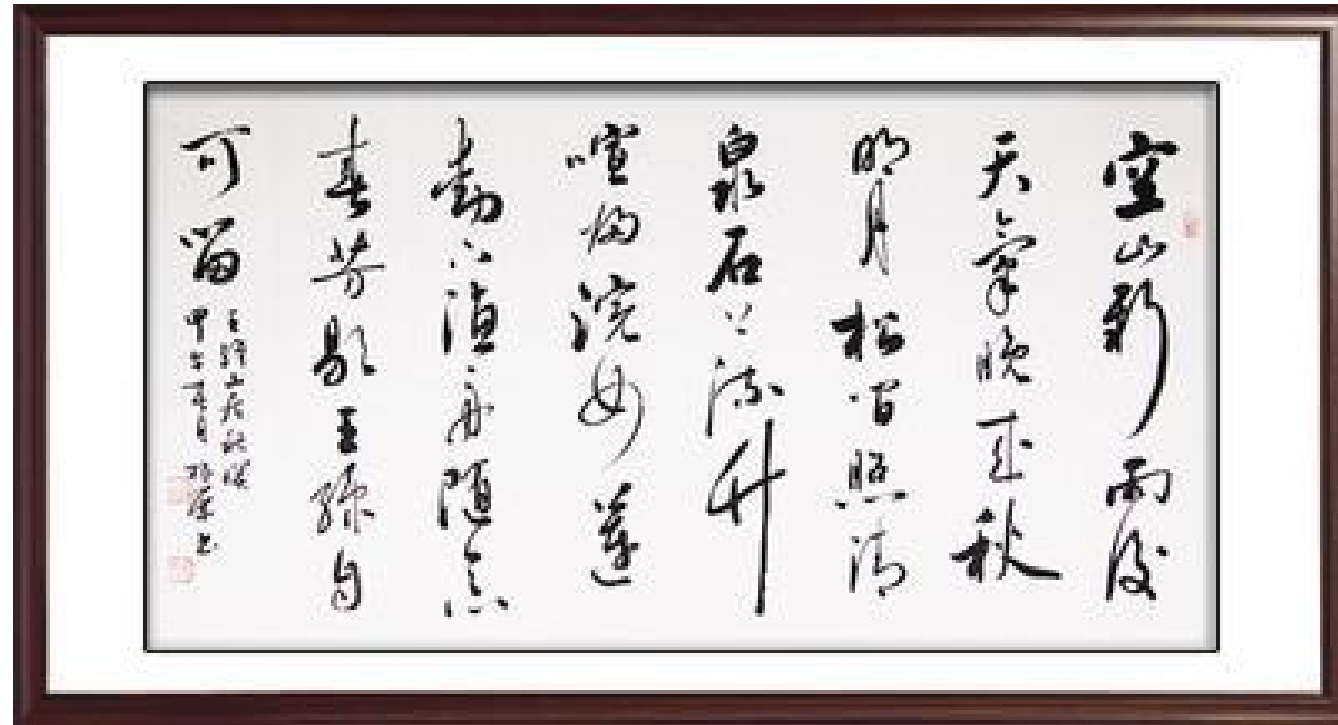 空山新雨後
天氣晚来秋
明月松間照清
泉石上流竹
喧歸浣女蓮
動下漁舟隨意
春芳歇王孫自
可留
王維山居秋暝
甲午夏月 書